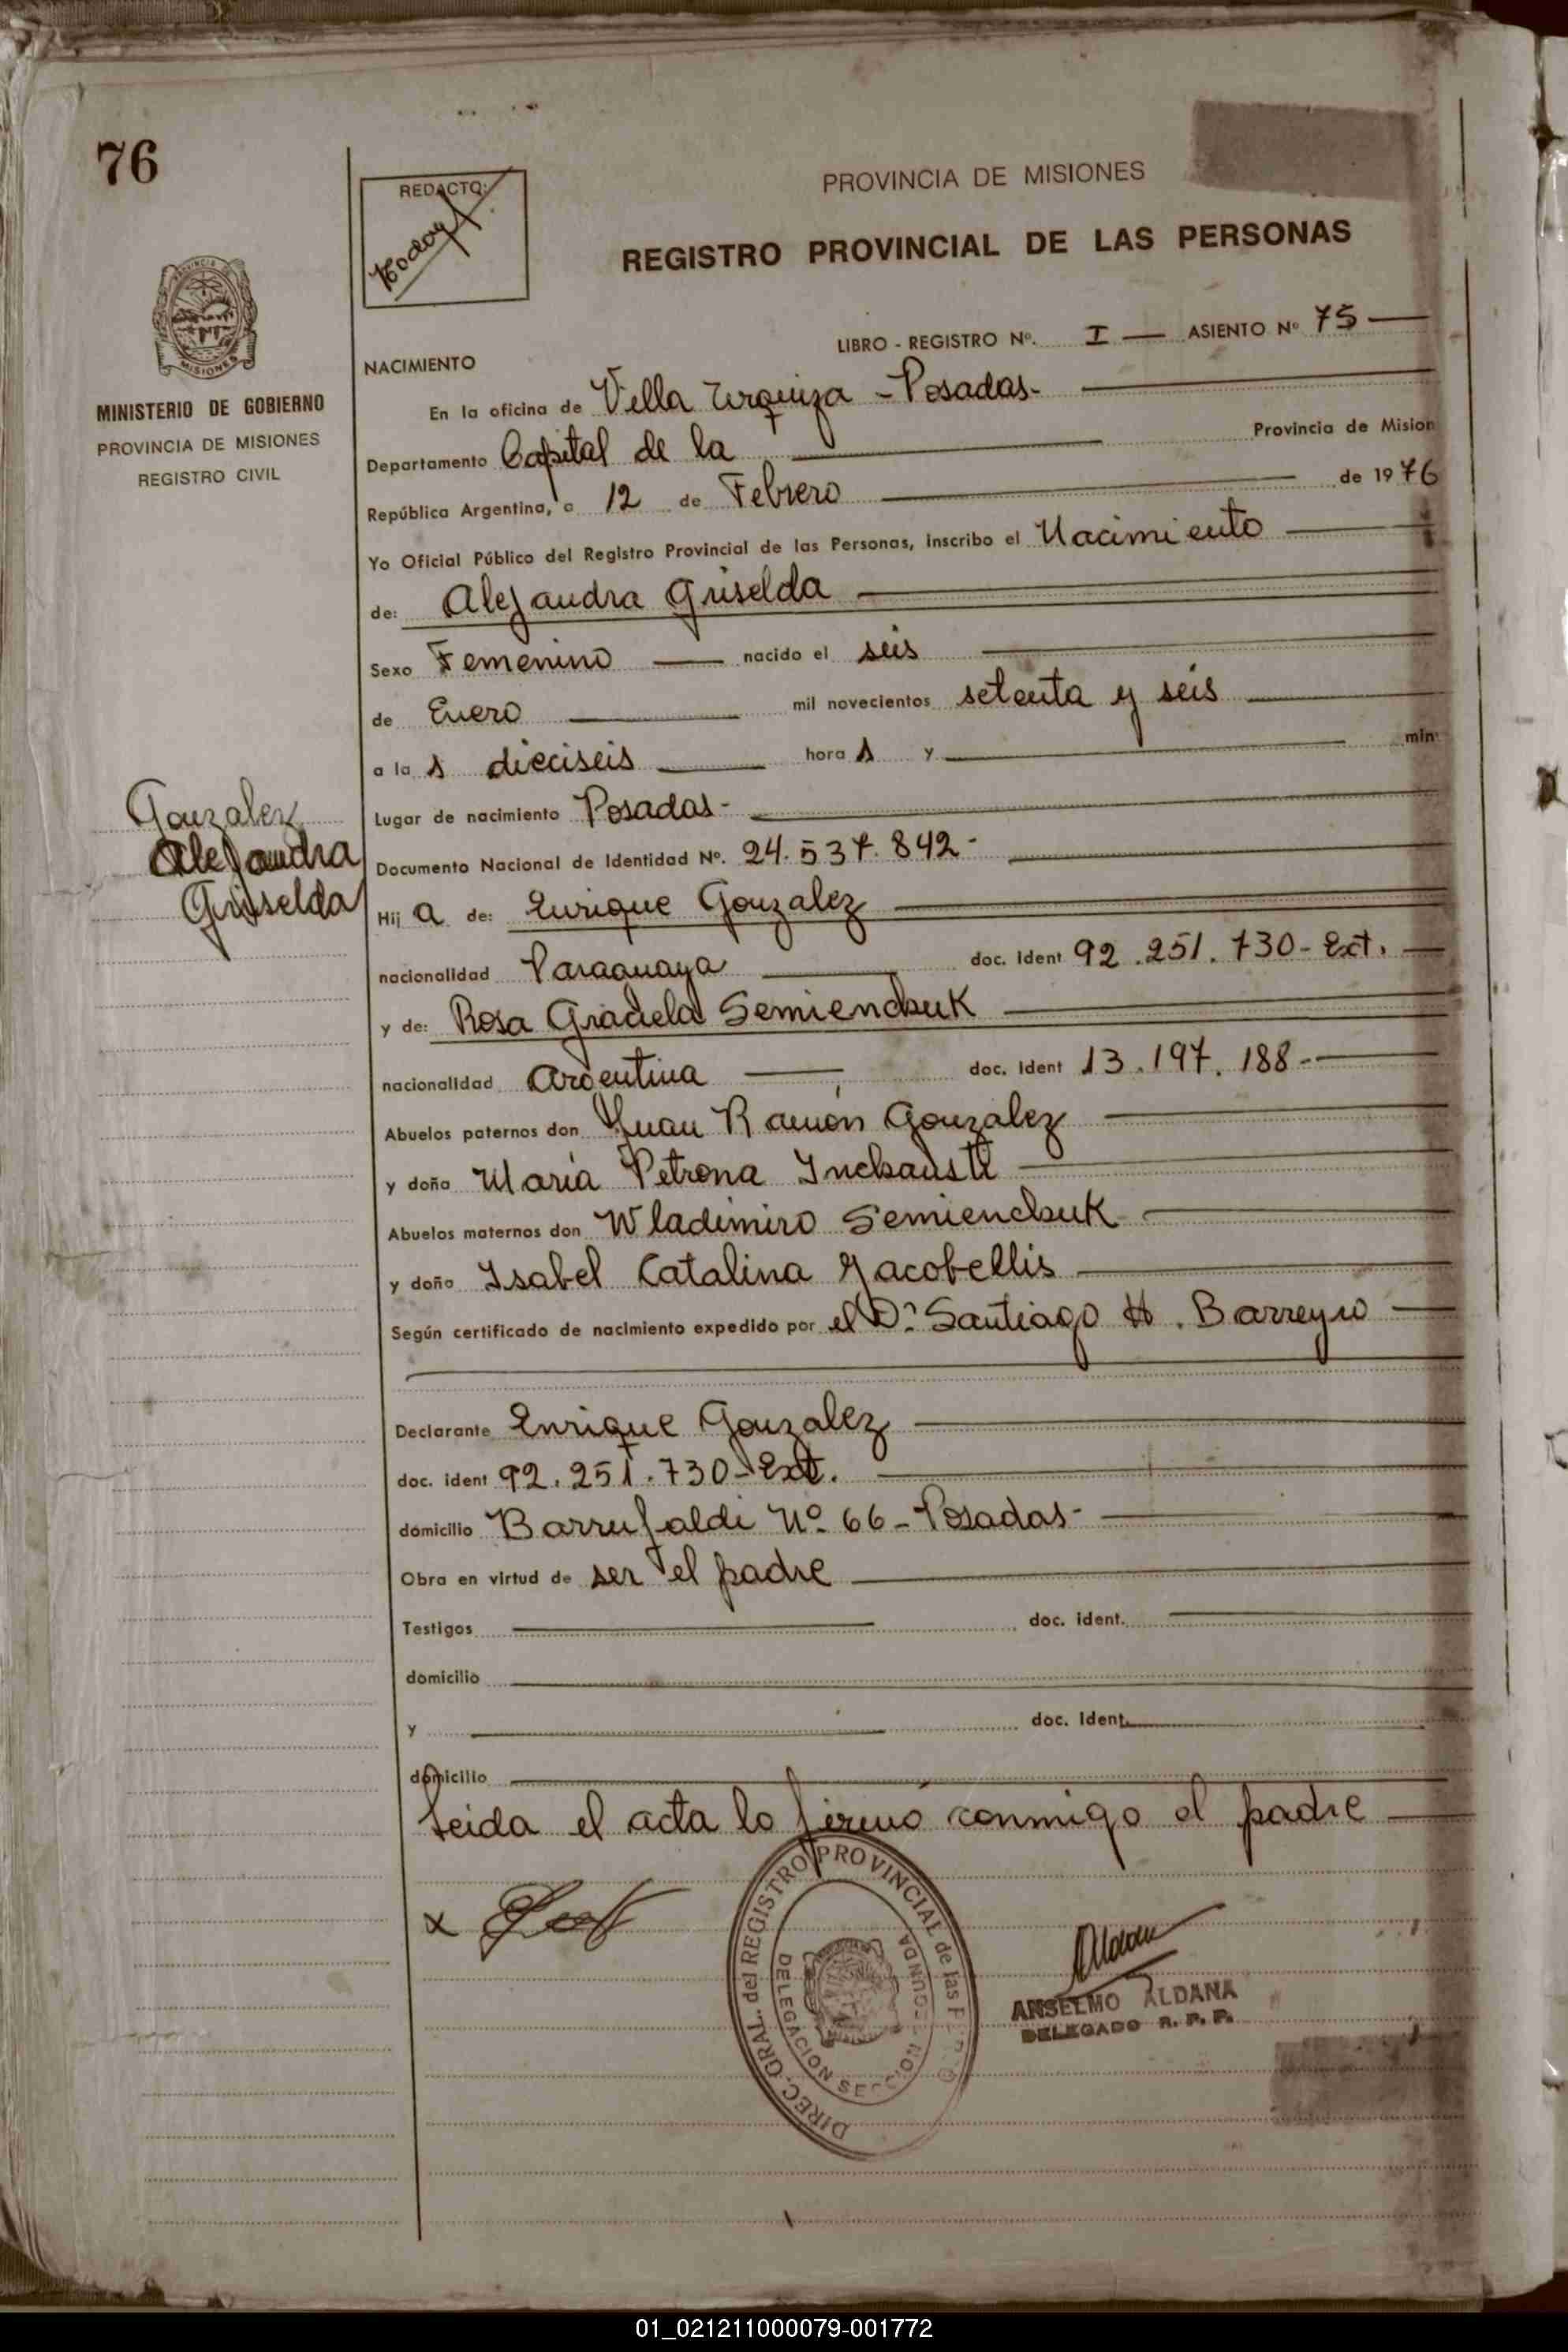 76
REDACTO:
PROVINCIA DE MISIONES
REGISTRO PROVINCIAL DE LAS PERSONAS
MISIONES
MINISTERIO DE GOBIERNO
PROVINCIA DE MISIONES
REGISTRO CIVIL
LIBRO - REGISTRO Nº. I ASIENTO Nº 75
NACIMIENTO
En la oficina de Villa Urquiza - Posadas-
Departamento Capital de la Provincia de Mision
República Argentina, a 12 de Febrero de 1976
Yo Oficial Público del Registro Provincial de las Personas, inscribo el Nacimiento
de: Alejandra Griselda
Sexo Femenino nacido el seis
de Enero mil novecientos setenta y seis
a la s dieciseis hora s y min
Gonzalez
Alejandra
Griselda
Lugar de nacimiento Posadas-
Documento Nacional de Identidad Nº. 24.537.842-
Hij a de: Enrique Gonzalez
nacionalidad Paraguaya doc. Ident 92.251.730- Ext.
y de: Rosa Graciela Semienchuk
nacionalidad Argentina doc. Ident 13.197.188-
Abuelos paternos don Juan Ramón Gonzalez
y doña María Petrona Inchausti
Abuelos maternos don Wladimiro Semienchuk
y doña Isabel Catalina Yacobellis
Según certificado de nacimiento expedido por el Dr Santiago H. Barreyro
Declarante Enrique Gonzalez
doc. ident 92.251.730- Ext.
domicilio Barrufaldi Nº 66 - Posadas-
Obra en virtud de ser el padre
Testigos doc. ident.
domicilio
y doc. Ident.
domicilio
Leida el acta lo firmó conmigo el padre
x
DIREC. GRAL. del REGISTRO PROVINCIAL de las
DELEGACION SECCION SEGUNDA
ANSELMO ALDANA
DELEGADO R. P. P.
01_021211000079-001772